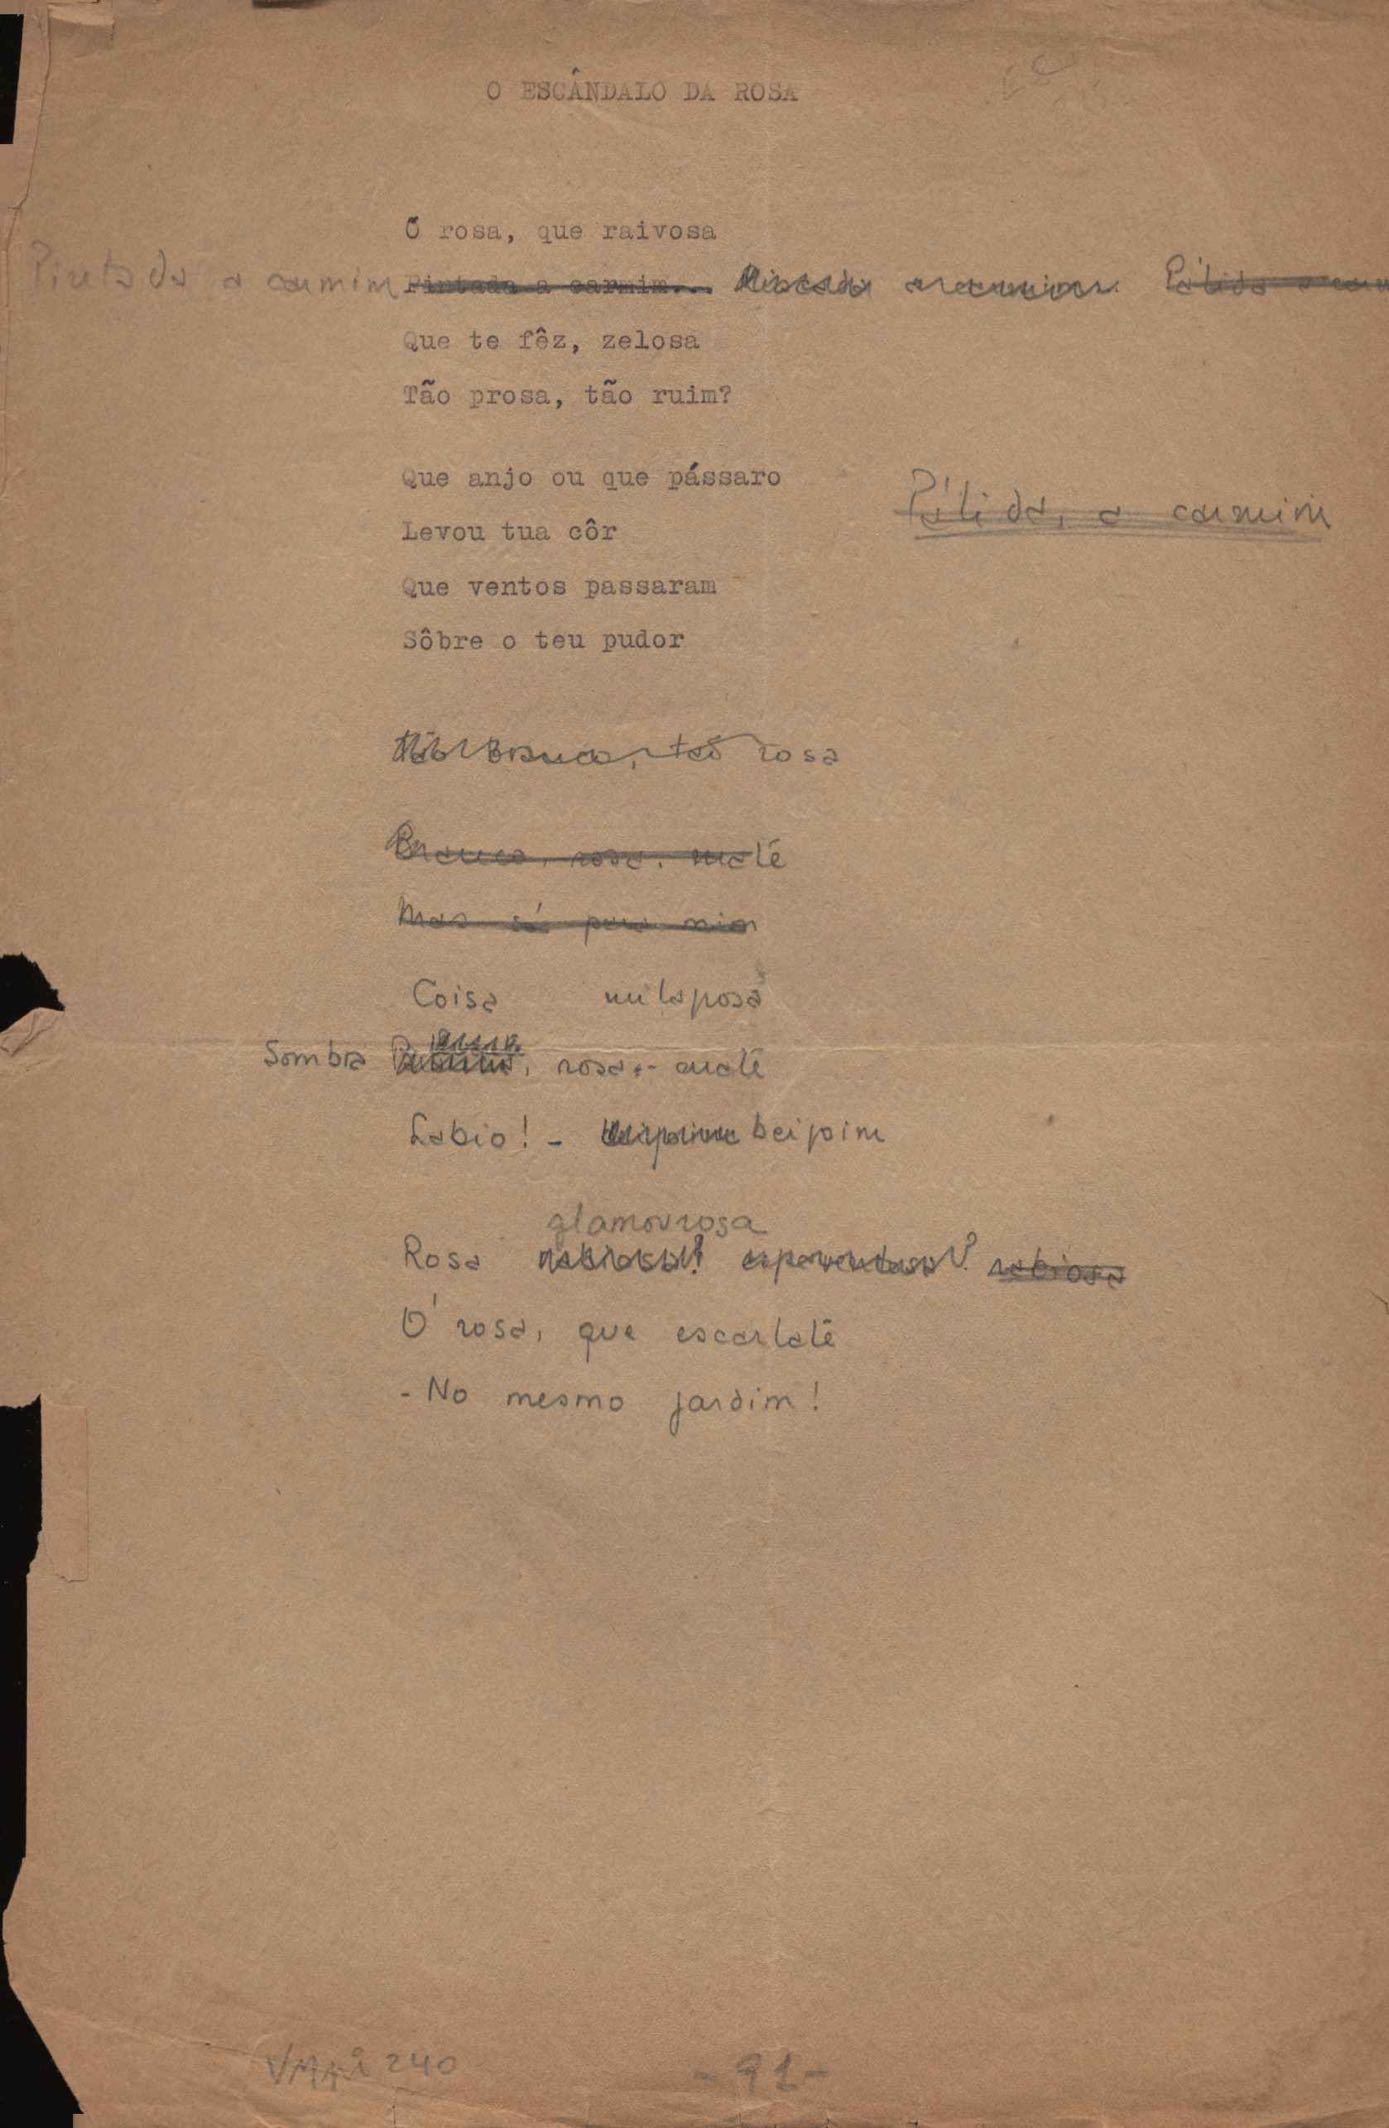 O ESCÂNDALO DA ROSA
Ó rosa, que raivosa
Pintada a carmim Pintada a carmim... Pálida a
Que te fêz, zelosa
Tão prosa, tão ruim?
Que anjo ou que pássaro
Levou tua côr
Pálida, a carmim
Que ventos passaram
Sôbre o teu pudor
tão rosa
Branca, rosa, mate
Mas só para mim
Coisa
Sombra rosa
Labio! - beijoim
glamourosa
Rosa rabiosa
Ó rosa, que escarlate
- No mesmo jardim!
240
- 91 -